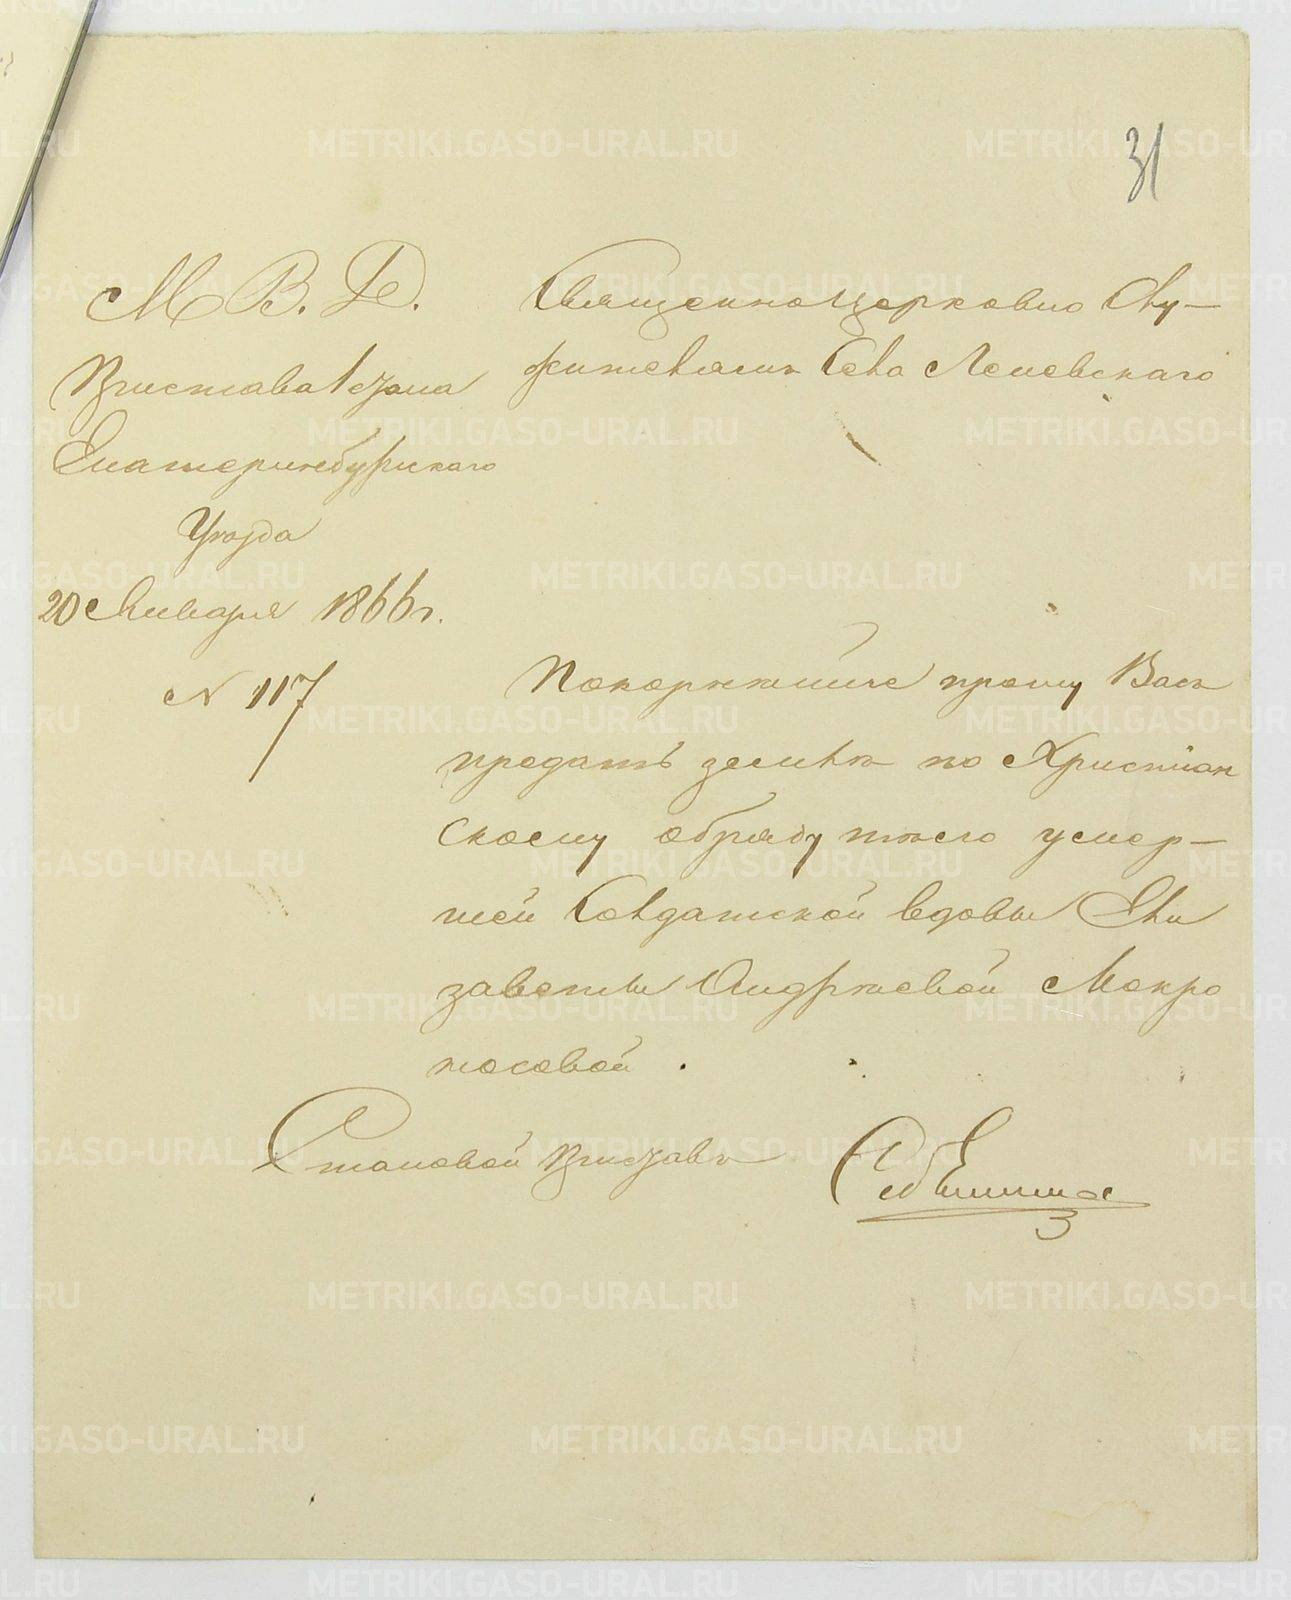 31
М. В. Д.
Пристава 1 стана
Екатеринбургскаго
Уѣзда
20 Января 1866 г.
N 117
Священноцерковно Слу-
жителямъ Села
Покорнѣйше прошу Васъ
предать землѣ по Христіан
скому обряду тѣло умер-
шей Солдатской вдовы Ели
заветы Андрѣевой Мокро
носовой.
Становой Приставъ